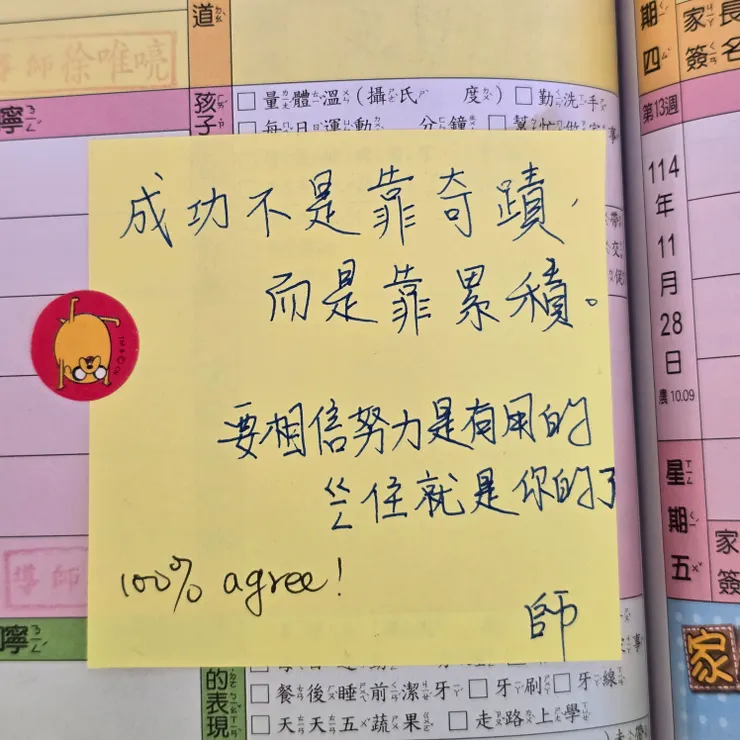 道
導師徐唯曉
孩子
量體溫(攝氏 度) 勤洗手
每日運動 分鐘 幫忙做家事
成功不是靠奇蹟,
而是靠累積。
要相信努力是有用的
ㄍㄥ住就是你的了
100% agree!
師
導師
嚀
嚀
的表現
餐後睡前潔牙 牙刷 牙線
天天五蔬果 走路上學
期四
家長簽名
第13週
114年11月28日
農10.09
星期五
家
簽
家